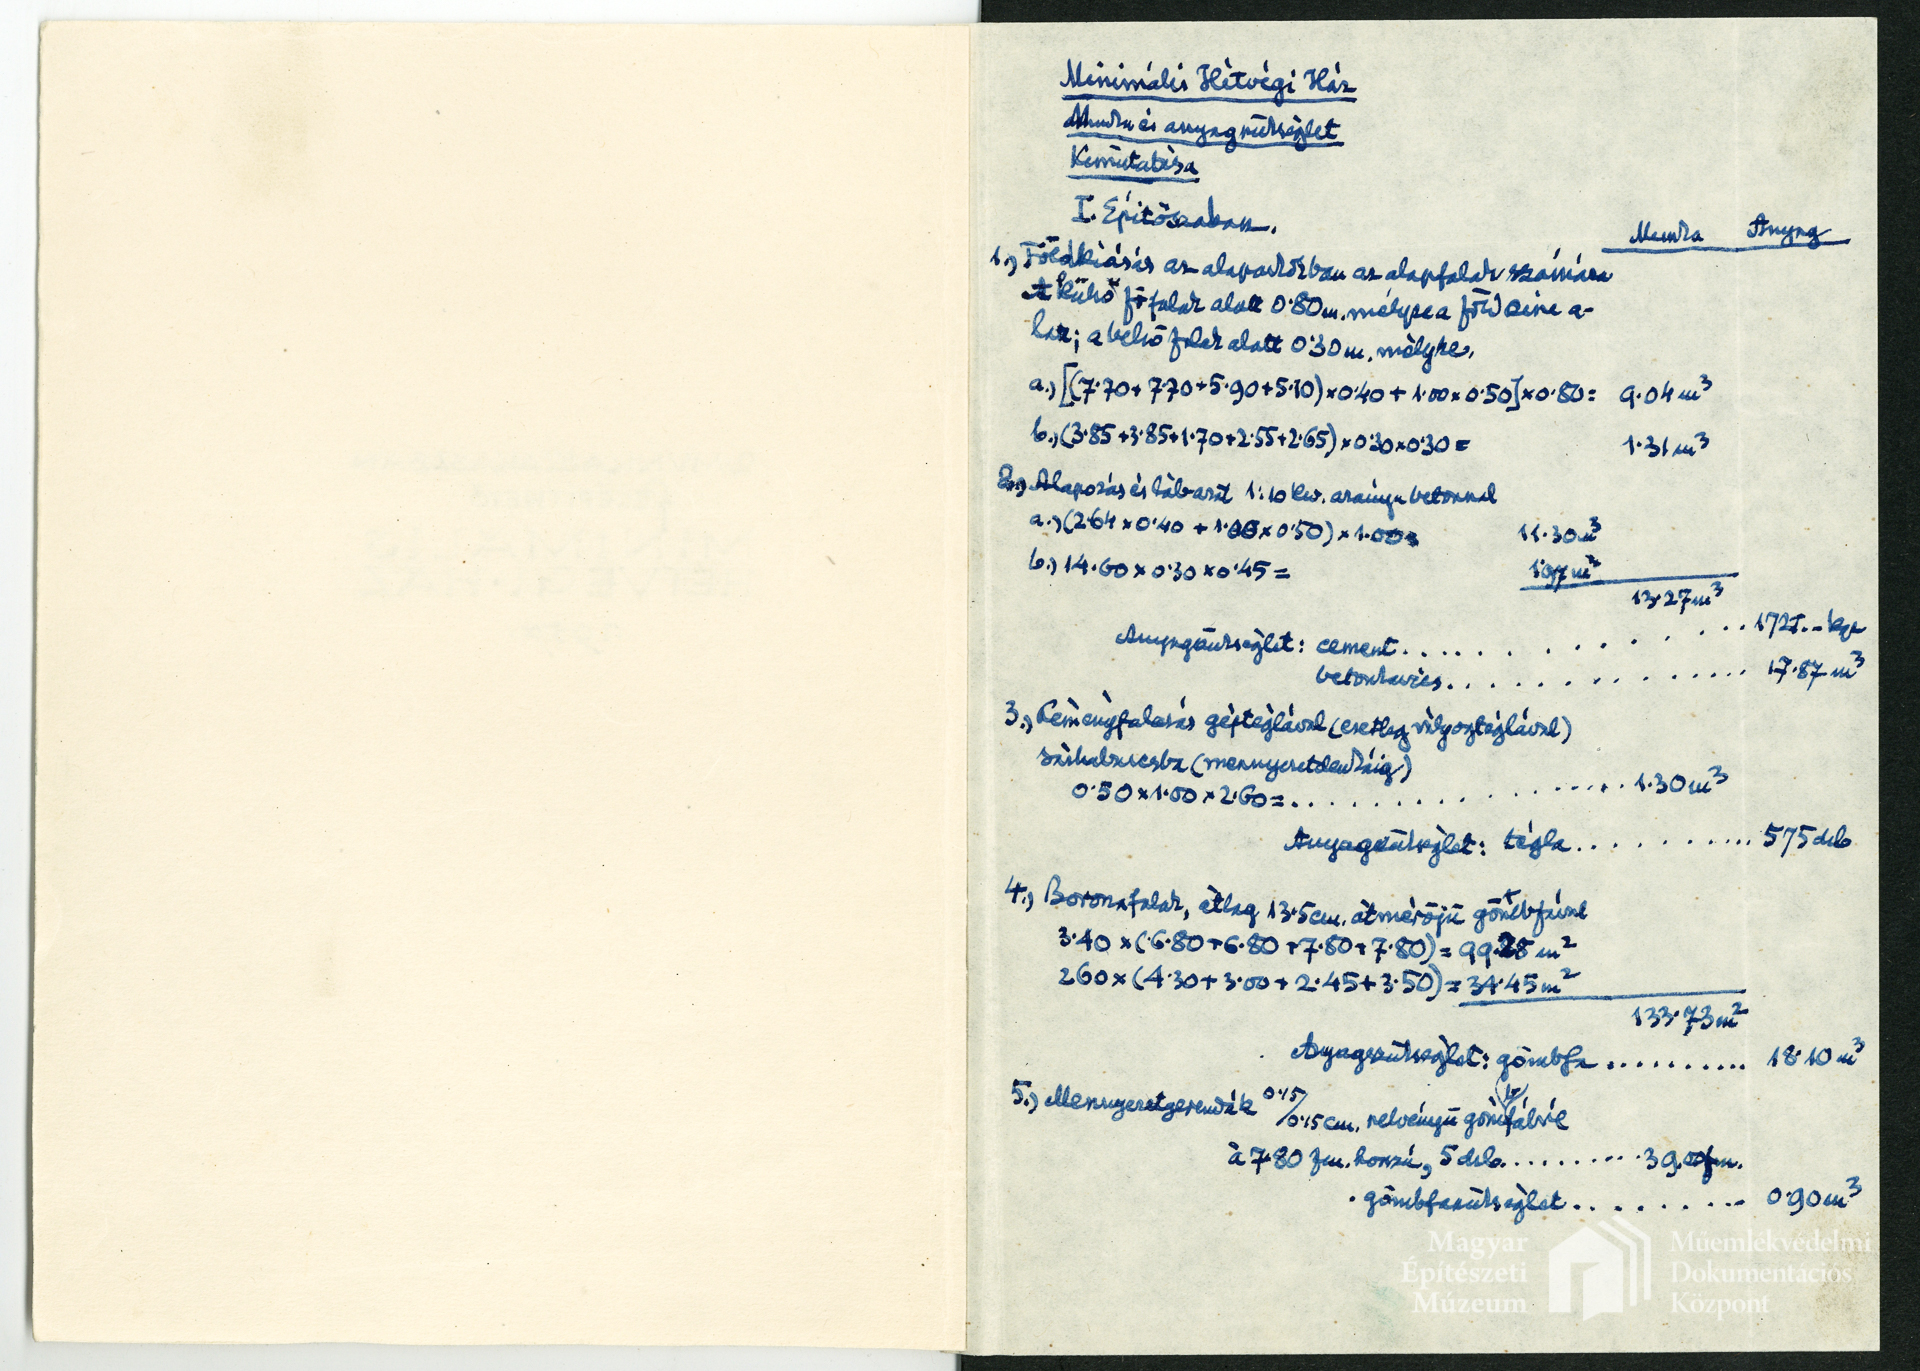 Minimális Hétvégi Ház
Munka és anyagszükséglet
Kimutatása
I. Épitőszakban.
Munka Anyag
1.) Földkiásás az alapárkokban az alapfalak számára
A külső főfalak alatt 0·80 m. mélyre a föld színe a-
latt; a belső falak alatt 0·30 m. mélyre.
a.) [(7·70+7·70+5·90+5·10)×0·40+1·00×0·50]×0·80= 9·04 m³
b.) (3·85+3·85+1·70+2·55+2·65)×0·30×0·30= 1·31 m³
2.) Alapozás és lábazat 1:10 kev. arányu betonnal
a.) (2·64×0·40+1·00×0·50)×1·00= 11·30 m³
b.) 14·60×0·30×0·45= 1·97 m³
13·27 m³
Anyagszükséglet: cement.......... 1725.- kgr
betonkavics.......... 17·87 m³
3.) Kéményfalazás géptéglával (esetleg vályogtéglával)
(mennyezetdeszkáig)
0·50×1·00×2·60=.......... 1·30 m³
Anyagszükséglet: tégla.......... 575 drb
4.) Boronafalak, átlag 13·5 cm. átmérőjü gömbfával
3·40×(6·80+6·80+7·80+7·80)=99·28 m²
260×(4·30+3·00+2·45+3·50)=34·45 m²
133·73 m²
Anyagszükséglet: gömbfa.......... 18·10 m³
5.) Mennyezetgerendák 0·15/0·15 cm. szelvényü gömbfából
à 7·80 fm. hosszú, 5 drb.......... 39.00 fm.
gömbfaszükséglet.......... 0·90 m³
Magyar
Építészeti
Múzeum
Műemlékvédelmi
Dokumentációs
Központ